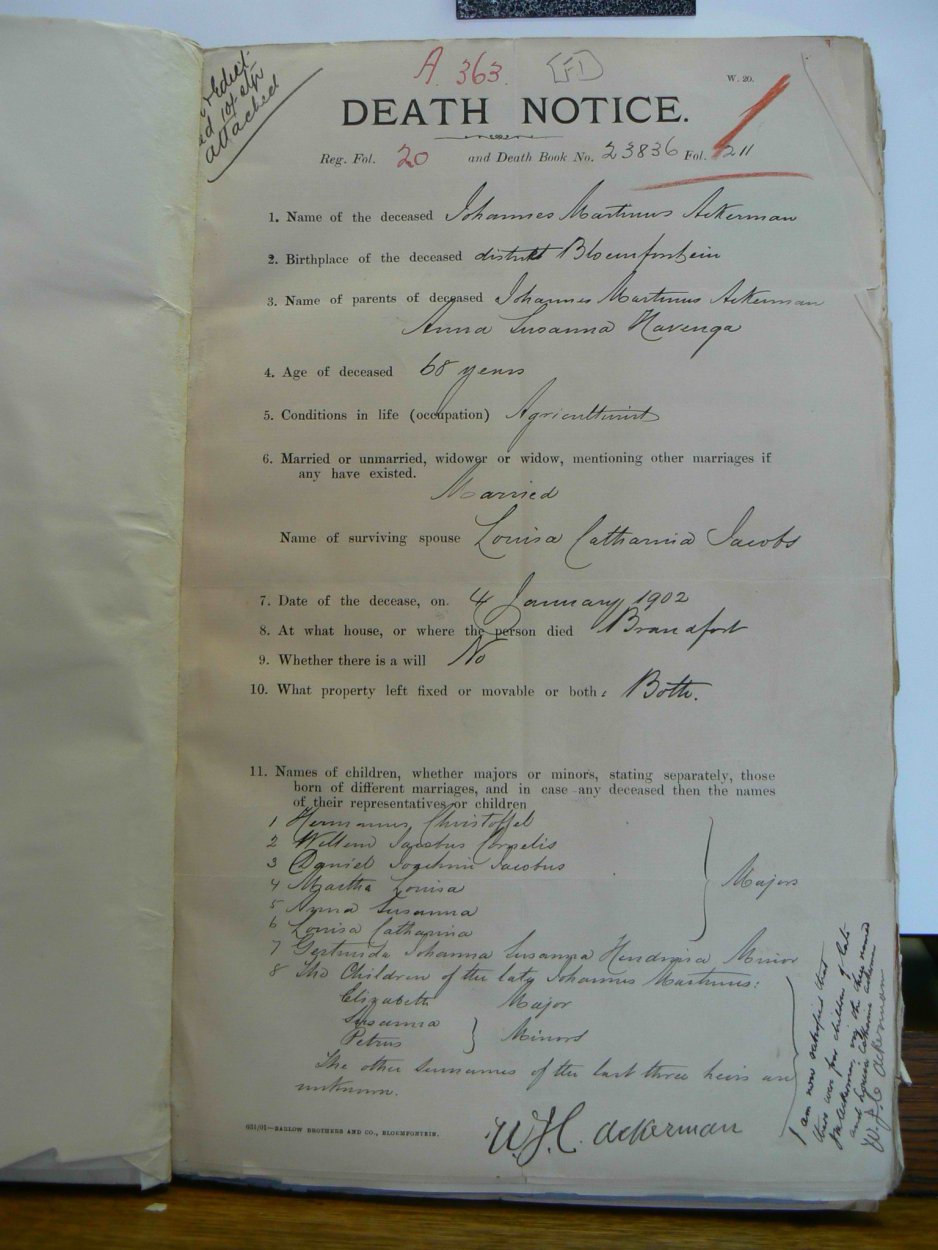 A. 363. FD
W. 20.
attached
DEATH NOTICE.
Reg. Fol. 20 and Death Book No. 23836 Fol. 211
1. Name of the deceased Johannes Martinus Ackerman
2. Birthplace of the deceased district Bloemfontein
3. Name of parents of deceased Johannes Martinus Ackerman
Anna Susanna Havenga
4. Age of deceased 68 years
5. Conditions in life (occupation) Agriculturist
6. Married or unmarried, widower or widow, mentioning other marriages if
any have existed.
Married
Name of surviving spouse Louisa Catharina Jacobs
7. Date of the decease, on. 4 January 1902
8. At what house, or where the person died Brandfort
9. Whether there is a will No
10. What property left fixed or movable or both: Both.
11. Names of children, whether majors or minors, stating separately, those
born of different marriages, and in case any deceased then the names
of their representatives or children
1 Hermanus Christoffel
2 Willem Jacobus Cornelis
3 Daniel Jochim Jacobus
4 Martha Louisa
5 Anna Susanna
6 Louisa Catharina
Majors
7 Gertruida Johanna Susanna Hendrisa Minor
8 The Children of the late Johannes Martinus:
Elizabeth Major
Susanna
Petrus
Minors
The other surnames of the last three heirs are
unknown.
W.J.C. Ackerman
631/01—BARLOW BROTHERS AND CO., BLOEMFONTEIN.
I am now satisfied that
there were four children of late
J M Ackerman, viz the three named
and Louisa Catharina Ackerman
W.J.C Ackerman